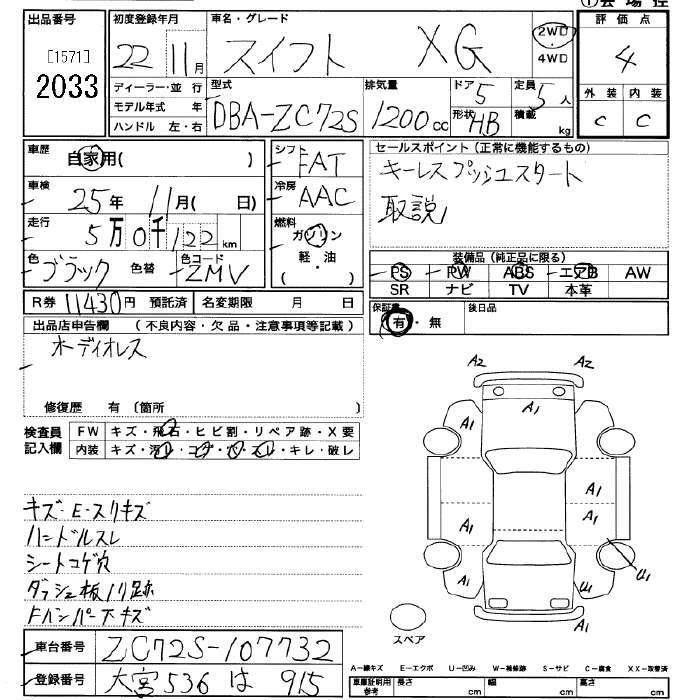 ①会場控
出品番号 [1571] 2033
初度登録年月 22 11月
車名・グレード スイフト XG 2WD・4WD
評価点 4
外装 C 内装 C
ディーラー・並行
モデル年式 年
ハンドル 左・右
型式 DBA-ZC72S
排気量 1200cc
ドア 5 定員 5人
形状 HB 積載 kg
車歴 自家用( )
車検 25年 11月( 日)
走行 5万0千122km
色 ブラック 色替 色コード ZMV
シフト FAT
冷房 AAC
燃料 ガソリン・軽油( )
セールスポイント(正常に機能するもの)
キーレス プッシュスタート
取説
装備品(純正品に限る)
PS PW ABS エアB AW
SR ナビ TV 本革
R券 11430円 預託済 名変期限 月 日
保証書 有・無 後日品
出品店申告欄 (不良内容・欠品・注意事項等記載)
オーディオレス
修復歴 有〔箇所 〕
検査員記入欄
FW キズ・飛石・ヒビ割・リペア跡・X要
内装 キズ・汚レ・コゲ・穴・スレ・キレ・破レ
キズ・E・スリキズ
ハンドルスレ
シートコゲ穴
ダッシュ板ノリ跡
Fバンパー下キズ
A2 A2
A1
A1
A1
A1 A1
A1 U1 U1
A1
スペア
車台番号 ZC72S-107732
登録番号 大宮 536 は 915
A-線キズ E-エクボ U-凹み W-補修跡 S-サビ C-腐食 XX-取替済
車庫証明用参考 長さ cm 幅 cm 高さ cm